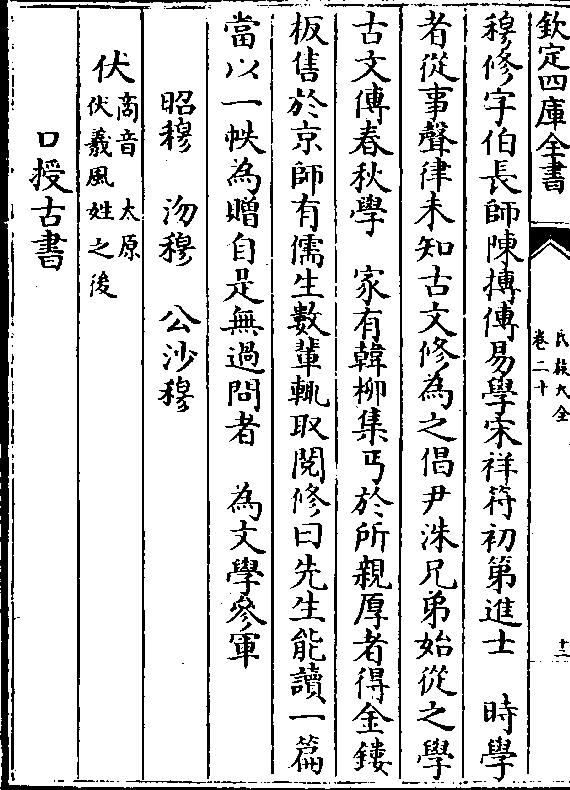 欽定四庫全書
氏族大全
卷二十
十二
穆修字伯長師陳摶傳易學宋祥符初第進士　時學
者從事聲律未知古文修為之倡尹洙兄弟始從之學
古文傳春秋學　家有韓柳集丐於所親厚者得金鏤
板售於京師有儒生數輩輒取閱修曰先生能讀一篇
當以一帙為贈自是無過問者　為文學參軍
昭穆　沕穆　公沙穆
伏
商音　太原
伏羲風姓之後
口授古書